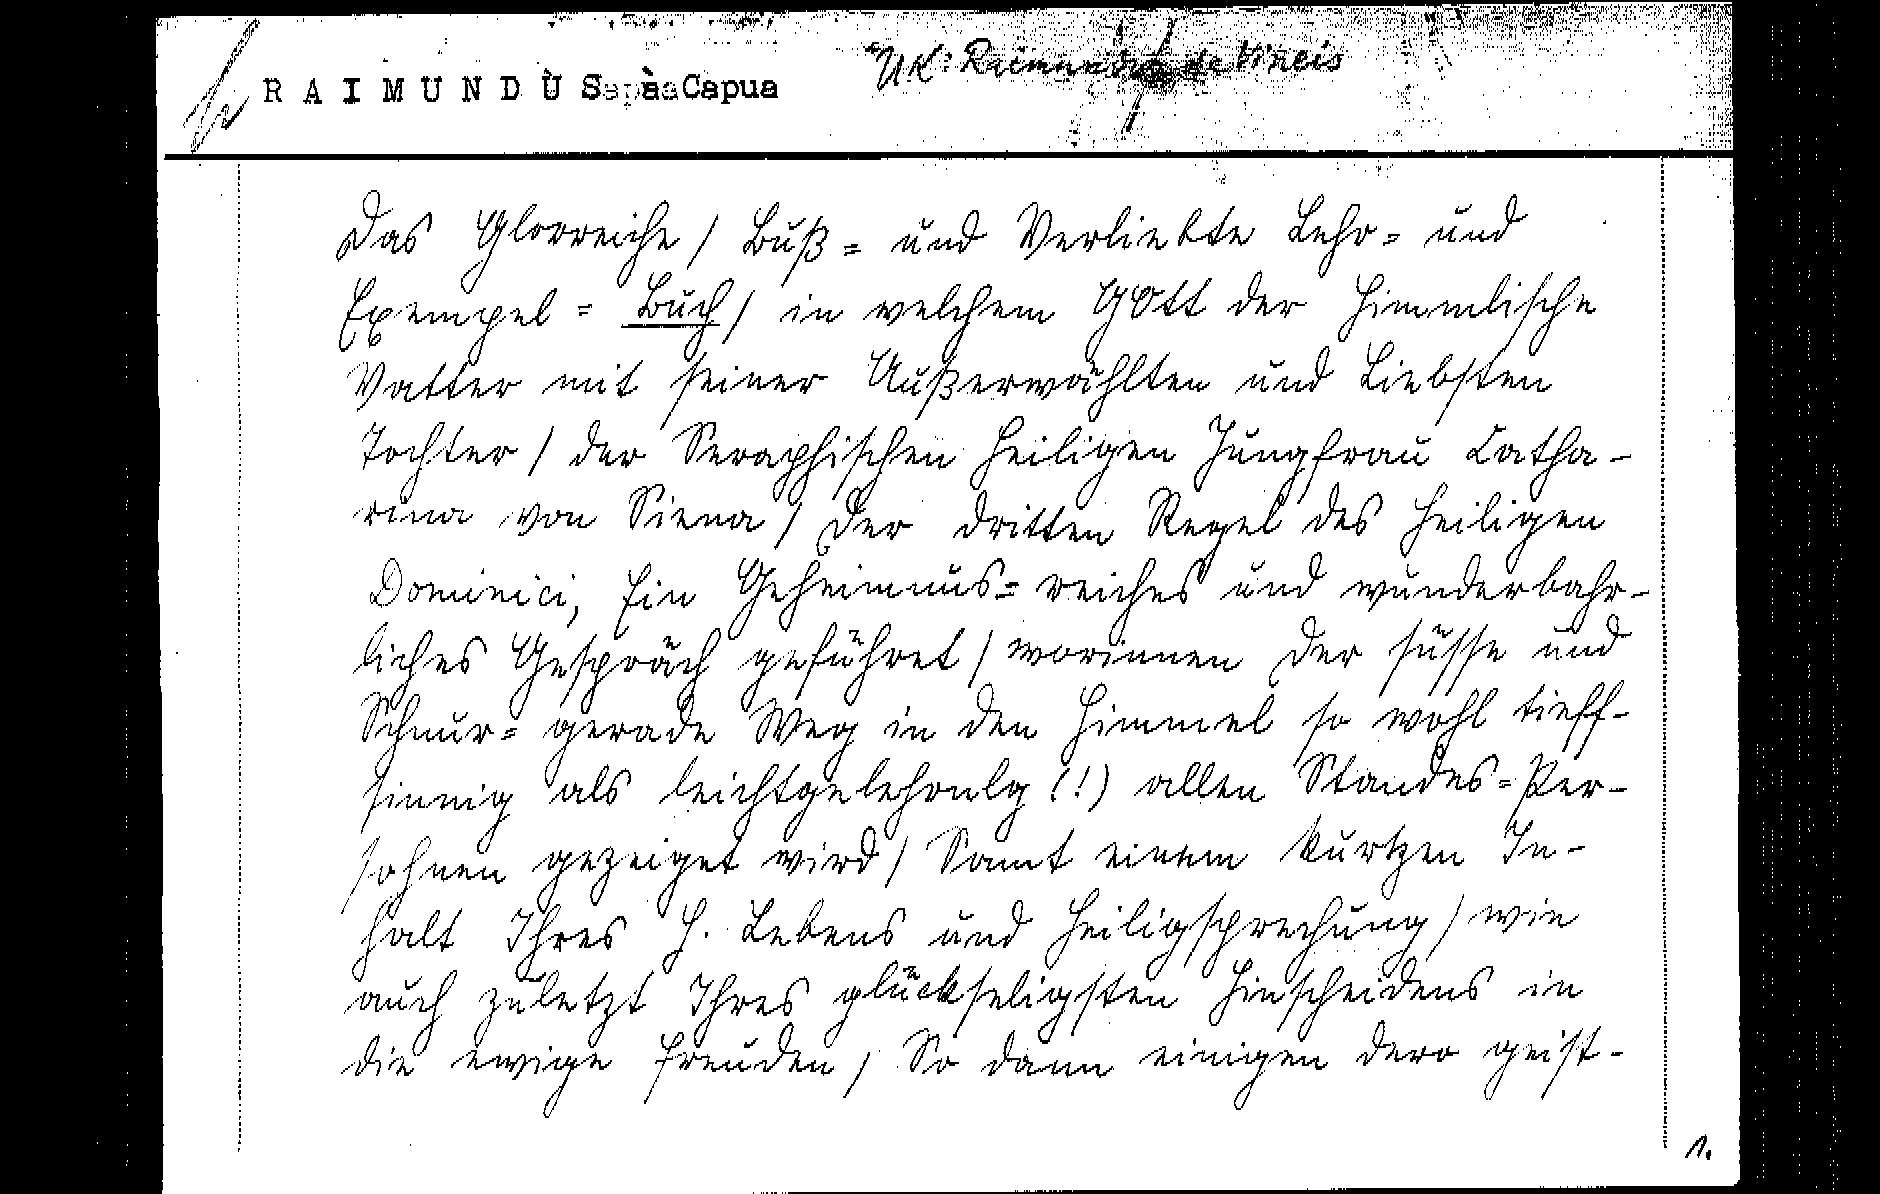 RAIMUNDÙS à Capua
UK: Raimundus de Vineis
Das Glorreiche / Buß= und Verliebte Lehr= und
Exempel= Buch / in welchem GOtt der Himmlische
Vatter mit seiner Außerwählten und Liebsten
Tochter / der Seraphischen Heiligen Jungfrau Catha-
rina von Siena / der dritten Regel des Heiligen
Dominici, Ein Geheimnus= reiches und wunderbahr-
liches Gespräch geführet / worinnen der süsse und
Schnur= gerade Weg in den Himmel so wohl tieff-
sinnig als leichtgelehrnlg (!) allen Standes= Per-
sohnen gezeiget wird / Samt einem kurtzen In-
halt Ihres H. Lebens und Heiligsprechung / wie
auch zuletzt Ihres glückseligsten Hinscheidens in
die ewige Freuden / So dann einigen dero geist-
1.